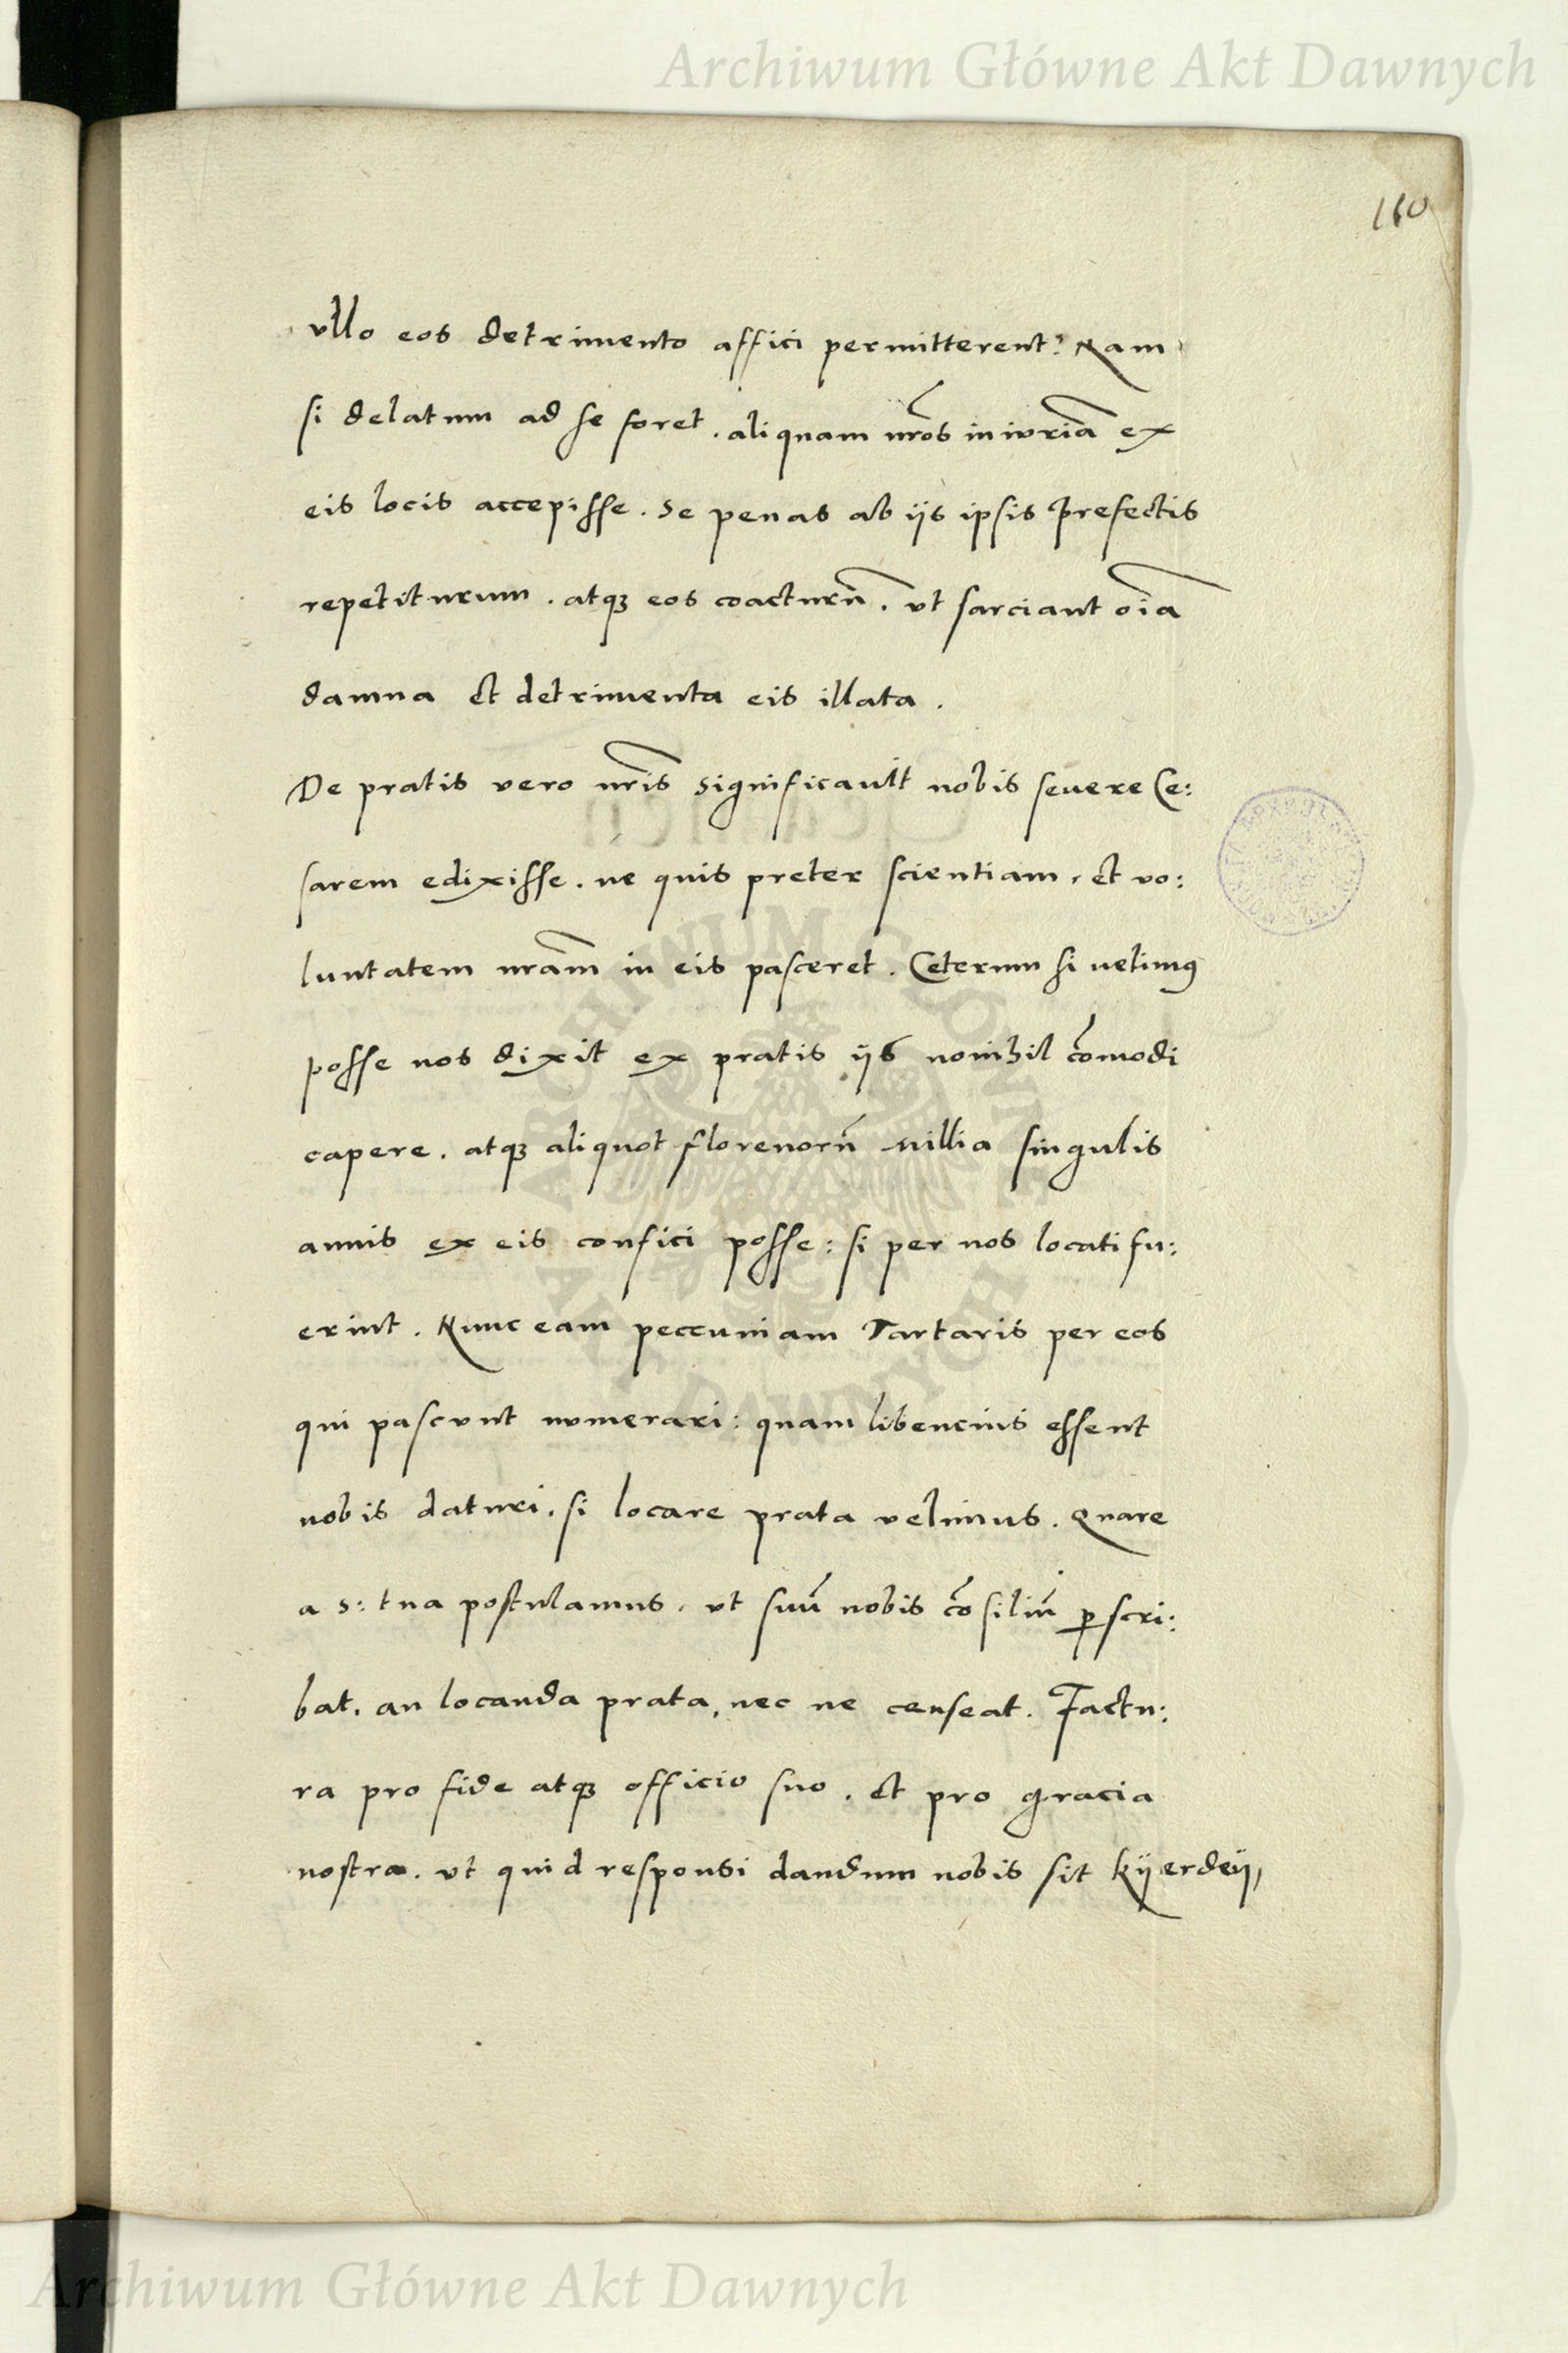 Archiwum Główne Akt Dawnych
160
vllo eos detrimento affici permitterent: Nam
si delatum ad se foret . aliquam nr̃os iniuriã ex
eis locis accepisse . Se penas ab ijs ipsis prefectis
repetiturum . atqꝫ eos coacturũ . vt sarciant oĩa
damna et detrimenta eis illata .
De pratis vero nr̃is significauit nobis seuere Ce:
sarem edixisse . ne quis preter scientiam , et vo:
luntatem nrãm in eis pasceret . Ceterum si uelimꝰ
posse nos dixit ex pratis ijs nonihil cõmodi
capere . atqꝫ aliquot florenorũ millia singulis
annis ex eis confici posse : si per nos locati fu:
erint . Nunc eam peccuniam Tartaris per eos
qui pascunt numerari : quam libencius essent
nobis daturi . si locare prata velimus . Quare
a S: tua postulamus , vt suũ nobis cõsiliũ ꝑscri:
bat . an locanda prata , nec ne censeat . Factu:
ra pro fide atqꝫ officio suo . et pro gracia
nostra . vt quid responsi dandum nobis sit kijerdeij,
ARCHIWUM GŁÓWNE
AKT DAWNYCH
Archiwum Główne Akt Dawnych